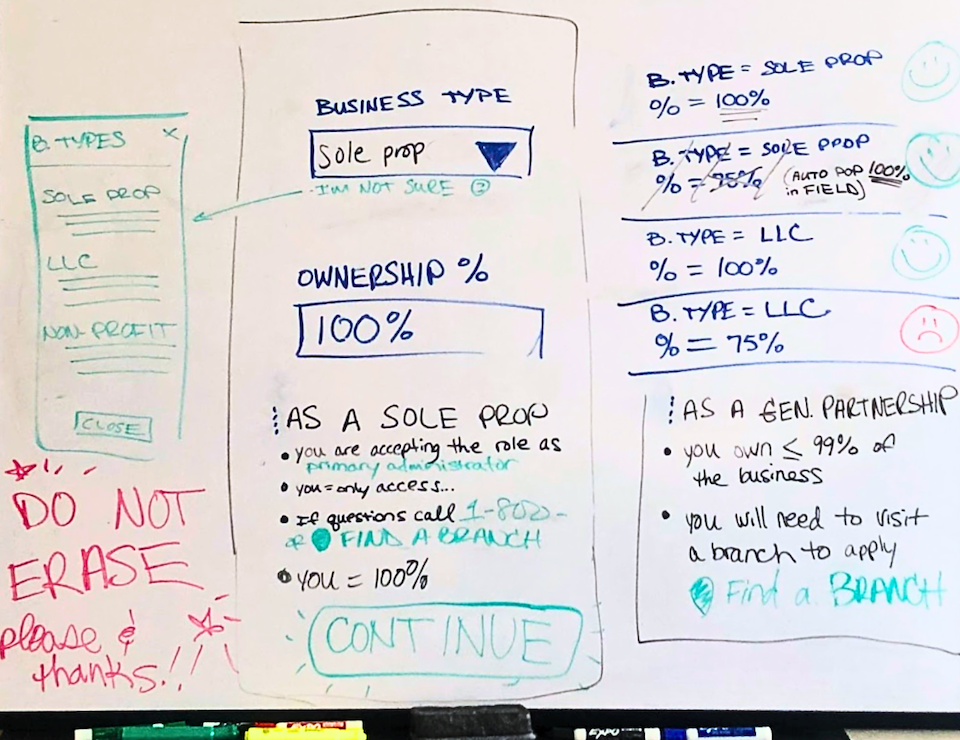 B. TYPES X
SOLE PROP
LLC
NON-PROFIT
CLOSE
DO NOT
ERASE
please &
thanks!!
BUSINESS TYPE
Sole prop
I'M NOT SURE ?
OWNERSHIP %
100%
AS A SOLE PROP
• you are accepting the role as
primary administrator
• you = only access...
• If questions call 1-800-
or FIND A BRANCH
• YOU = 100%
CONTINUE
B. TYPE = SOLE PROP
% = 100%
B. TYPE = SOLE PROP
% = 75% (AUTO POP 100%
in FIELD)
B. TYPE = LLC
% = 100%
B. TYPE = LLC
% = 75%
AS A GEN. PARTNERSHIP
• you own ≤ 99% of
the business
• you will need to visit
a branch to apply
Find a BRANCH
EXPO